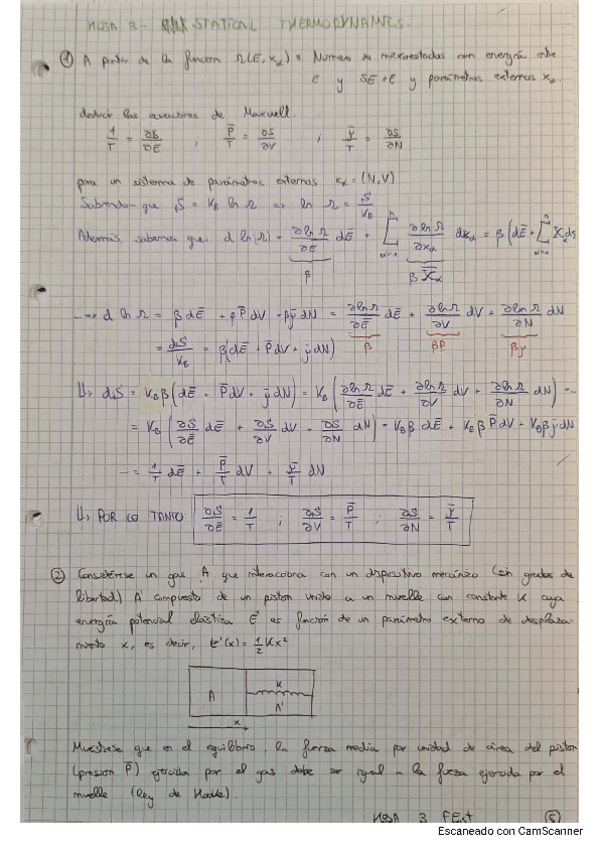 HOJA 3 - STATICAL THERMODYNAMICS.
① A partir de la función Ω(E, xα) = Numero de microestados con energía entre
E y δE+E y parámetros externos xα.
deducir las ecuaciones de Maxwell.
1/T = ∂S/∂Ē ; P̄/T = ∂S/∂V ; μ̄/T = ∂S/∂N
para un sistema de parámetros externos xα = (N,V)
Sabiendo que S = K_B ln Ω => ln Ω = S/K_B
Además, sabemos que: d ln(Ω) = ∂lnΩ/∂Ē dĒ + Σ ∂lnΩ/∂xα dxα = β(dĒ + Σ X̄α dx
β β X̄α
--→ d ln Ω = β dĒ + β P̄ dV + β μ̄ dN = ∂lnΩ/∂Ē dĒ + ∂lnΩ/∂V dV + ∂lnΩ/∂N dN
= dS/K_B = β(dĒ + P̄dV + μ̄dN) β βP̄ βμ̄
↳ dS = K_Bβ(dĒ + P̄dV + μ̄dN) = K_B(∂lnΩ/∂Ē dĒ + ∂lnΩ/∂V dV + ∂lnΩ/∂N dN) = --
= K_B(∂S/∂Ē dĒ + ∂S/∂V dV + ∂S/∂N dN) = K_Bβ dĒ + K_Bβ P̄dV + K_Bβ μ̄dN
-- = 1/T dĒ + P̄/T dV + μ̄/T dN
↳ POR LO TANTO ∂S/∂Ē = 1/T ; ∂S/∂V = P̄/T ; ∂S/∂N = μ̄/T
② Considérese un gas A que interacciona con un dispositivo mecánico (sin grados de
libertad) A' compuesto de un piston unido a un muelle con constante K cuya
energía potencial elástica E' es función de un parámetro externo de desplaza-
miento x, es decir, E'(x) = 1/2 Kx²
K
A A'
x
Muéstrese que en el equilibrio, la fuerza media por unidad de área del piston
(presion P̄) ejercida por el gas debe ser igual a la fuerza ejercida por el
muelle (ley de Hooke).
HOJA 3 FEst ⑤
Escaneado con CamScanner